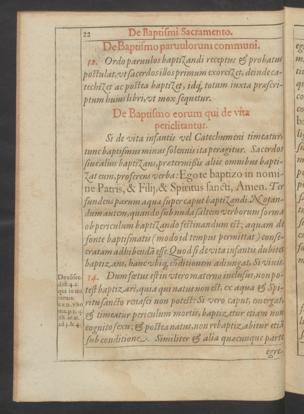 22
De Baptismi Sacramento.
De Baptismo paruulorum communi.
12. Ordo paruulos baptizandi receptus & probatus
postulat, vt sacerdos illos primum exorcizet, deinde ca-
techizet ac postea baptizet, idq; totum iuxta præscri-
ptum huius libri, vt mox sequetur.
De Baptismo eorum qui de vita
periclitantur.
Si de vita infantis vel Catechumeni timeatur,
tunc baptismus minus solennis ita peragitur. Sacerdos
siue alius baptizans, prætermissis aliis omnibus bapti-
zat eum, proferens verba: Ego te baptizo in nomi-
ne Patris, & Filij, & Spiritus sancti, Amen. Ter
fundens param aqua super caput baptizandi. Notan-
dum autem, quando sub nuda saltem verborum forma
ob periculum baptizando festinandum est, aquam de
fonte baptismatis (modo id tempus permittat) conse-
cratam adhibendā esse. Quod si de vita infantis dubitet
baptizans, hanc vbiq; cōditionem adiungat. Si viuis.
14. Dum fœtus est in vtero materno inclusus, non po-
test baptizari, quia qui natus non est, ex aqua & Spi-
ritu sancto renasci non potest: Si vero caput, emergat,
& timeatur periculum mortis, baptizetur etiam non
cognito sexu, & postea natus, non rebaptizabitur etiā
sub conditione. Similiter & alia quacunque parte
egre-